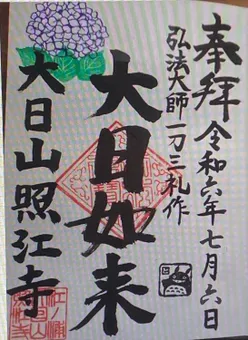 奉拝 令和六年七月六日
弘法大師一刀三礼作
大日如来
大日山照江寺